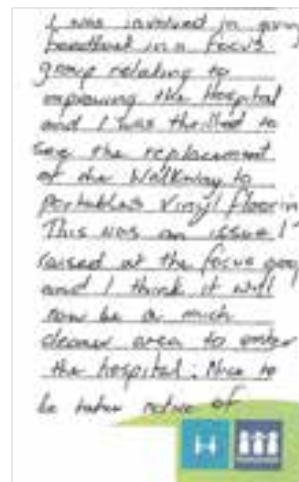 I was involved in giving
feedback in a focus
group relating to
improving the hospital
and I was thrilled to
see the replacement
of the Walkway to
Portables Vinyl floorin
This was an issue I
raised at the focus group
and I think it will
now be a much
cleaner area to enter
the hospital. Nice to
be taken notice of